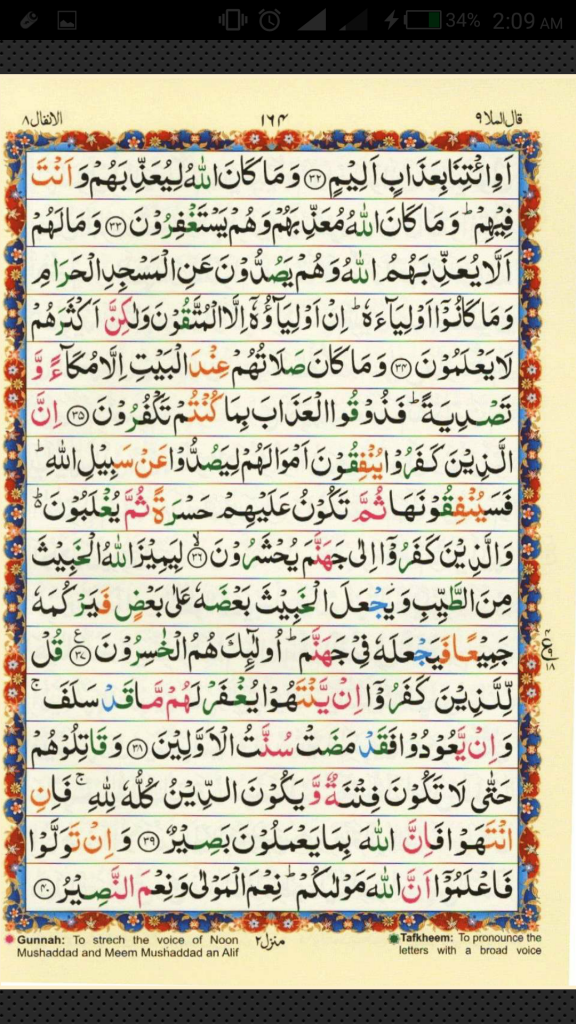 34% 2:09 AM
الانفال ٨ ١٦٤ قال الملا ٩
اَوِائْتِنَا بِعَذَابٍ اَلِيْمٍ ﴿٣٢﴾ وَمَا كَانَ اللّٰهُ لِيُعَذِّبَهُمْ وَاَنْتَ
فِيْهِمْ ؕ وَمَا كَانَ اللّٰهُ مُعَذِّبَهُمْ وَهُمْ يَسْتَغْفِرُوْنَ ﴿٣٣﴾ وَمَا لَهُمْ
اَلَّا يُعَذِّبَهُمُ اللّٰهُ وَهُمْ يَصُدُّوْنَ عَنِ الْمَسْجِدِ الْحَرَامِ
وَمَا كَانُوْۤا اَوْلِيَآءَهٗ ؕ اِنْ اَوْلِيَآؤُهٗۤ اِلَّا الْمُتَّقُوْنَ وَلٰكِنَّ اَكْثَرَهُمْ
لَا يَعْلَمُوْنَ ﴿٣٤﴾ وَمَا كَانَ صَلَاتُهُمْ عِنْدَ الْبَيْتِ اِلَّا مُكَآءً وَّ
تَصْدِيَةً ؕ فَذُوْقُوا الْعَذَابَ بِمَا كُنْتُمْ تَكْفُرُوْنَ ﴿٣٥﴾ اِنَّ
الَّذِيْنَ كَفَرُوْا يُنْفِقُوْنَ اَمْوَالَهُمْ لِيَصُدُّوْا عَنْ سَبِيْلِ اللّٰهِ ؕ
فَسَيُنْفِقُوْنَهَا ثُمَّ تَكُوْنُ عَلَيْهِمْ حَسْرَةً ثُمَّ يُغْلَبُوْنَ ۬ؕ
وَالَّذِيْنَ كَفَرُوْۤا اِلٰى جَهَنَّمَ يُحْشَرُوْنَ ﴿٣٦﴾ۙ لِيَمِيْزَ اللّٰهُ الْخَبِيْثَ
مِنَ الطَّيِّبِ وَيَجْعَلَ الْخَبِيْثَ بَعْضَهٗ عَلٰى بَعْضٍ فَيَرْكُمَهٗ
جَمِيْعًا فَيَجْعَلَهٗ فِيْ جَهَنَّمَ ؕ اُولٰٓئِكَ هُمُ الْخٰسِرُوْنَ ﴿٣٧﴾ قُلْ
لِّلَّذِيْنَ كَفَرُوْۤا اِنْ يَّنْتَهُوْا يُغْفَرْ لَهُمْ مَّا قَدْ سَلَفَ ۚ
وَاِنْ يَّعُوْدُوْا فَقَدْ مَضَتْ سُنَّتُ الْاَوَّلِيْنَ ﴿٣٨﴾ وَقَاتِلُوْهُمْ
حَتّٰى لَا تَكُوْنَ فِتْنَةٌ وَّيَكُوْنَ الدِّيْنُ كُلُّهٗ لِلّٰهِ ۚ فَاِنِ
انْتَهَوْا فَاِنَّ اللّٰهَ بِمَا يَعْمَلُوْنَ بَصِيْرٌ ﴿٣٩﴾ وَاِنْ تَوَلَّوْا
فَاعْلَمُوْۤا اَنَّ اللّٰهَ مَوْلٰىكُمْ ؕ نِعْمَ الْمَوْلٰى وَنِعْمَ النَّصِيْرُ ﴿٤٠﴾
Gunnah: To strech the voice of Noon
Mushaddad and Meem Mushaddad an Alif
منزل ٢
Tafkheem: To pronounce the
letters with a broad voice